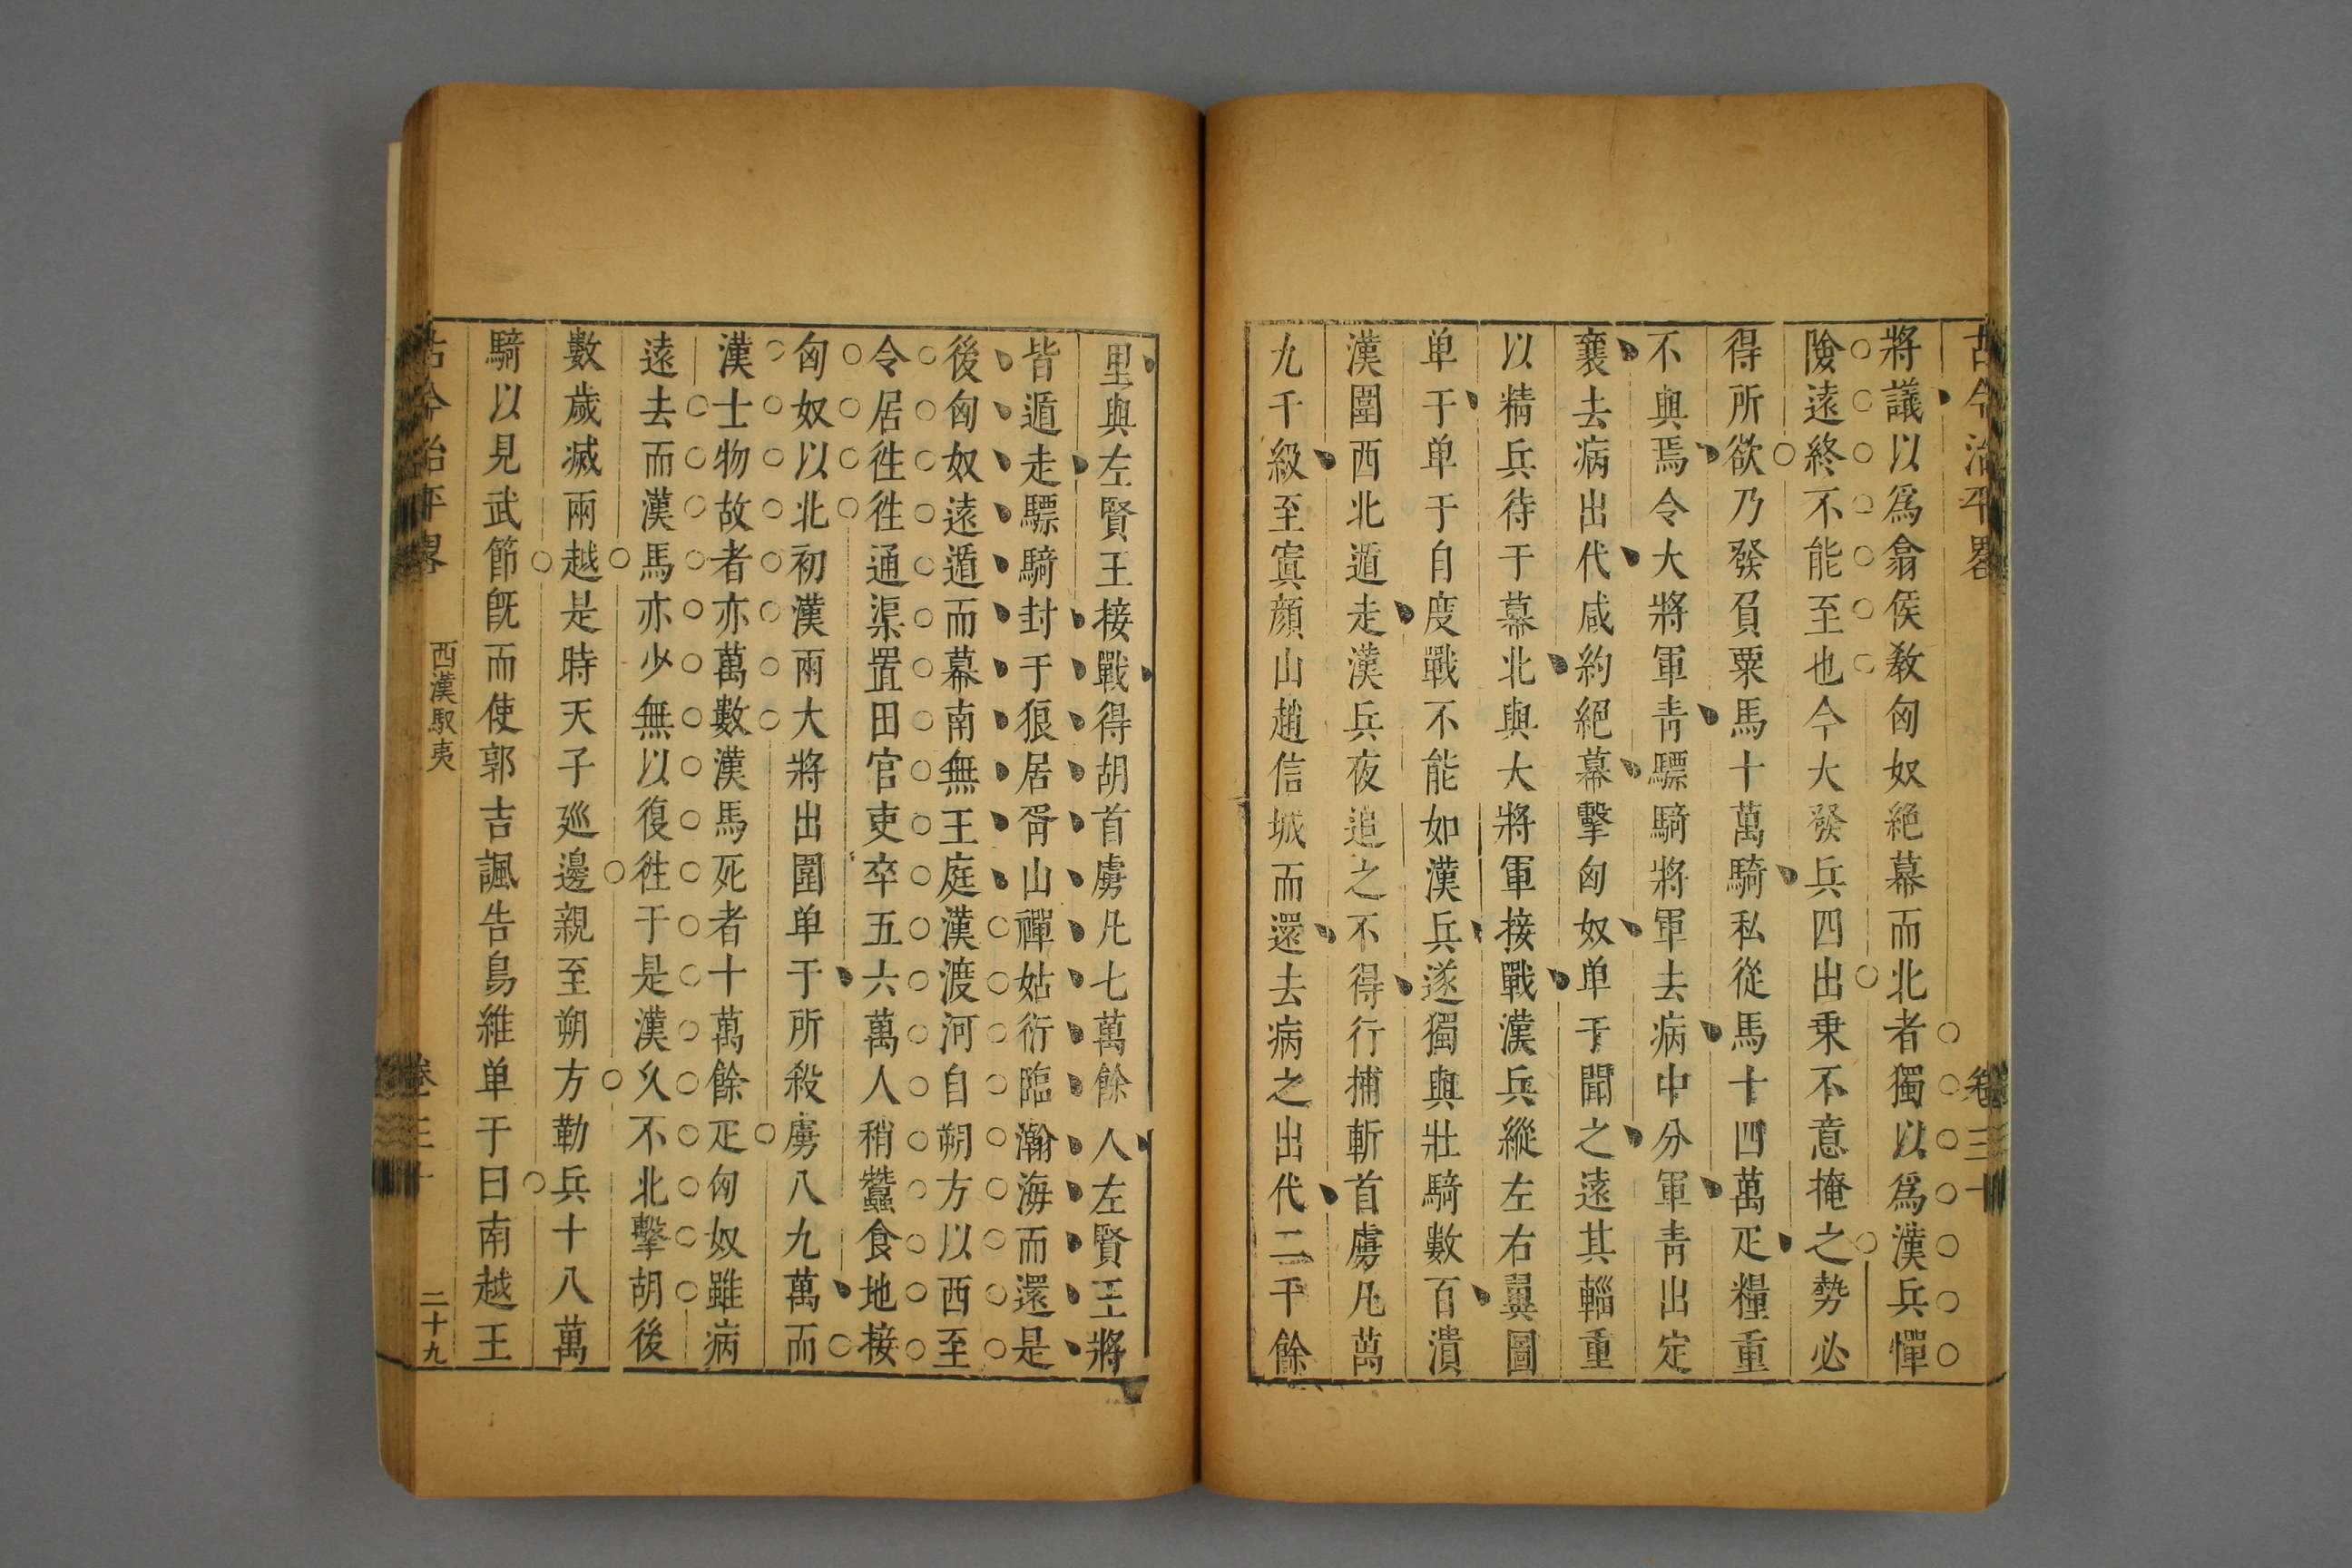 古今治平畧　卷三十
將議以爲翕侯敎匈奴絶幕而北者獨以爲漢兵憚
險遠終不能至也今大發兵四出乗不意掩之勢必
得所欲乃發負粟馬十萬騎私從馬十四萬疋糧重
不與焉令大將軍靑驃騎將軍去病中分軍靑出定
襄去病出代咸約絕幕擊匈奴单于聞之遠其輜重
以精兵待于幕北與大將軍接戰漢兵縱左右翼圍
单于单于自度戰不能如漢兵遂獨與壯騎數百潰
漢圍西北遁走漢兵夜追之不得行捕斬首虜凡萬
九千級至寘顔山趙信城而還去病之出代二千餘
里與左賢王接戰得胡首虜凡七萬餘人左賢王將
皆遁走驃騎封于狼居胥山禪姑衍臨瀚海而還是
後匈奴遠遁而幕南無王庭漢渡河自朔方以西至
令居徃徃通渠置田官吏卒五六萬人稍蠶食地接
匈奴以北初漢兩大將出圍单于所殺虜八九萬而
漢士物故者亦萬數漢馬死者十萬餘疋匈奴雖病
遠去而漢馬亦少無以復徃于是漢久不北擊胡後
數歲滅兩越是時天子廵邊親至朔方勒兵十八萬
騎以見武節旣而使郭吉諷告烏維单于曰南越王
古今治平畧　西漢馭夷　卷三十　二十九